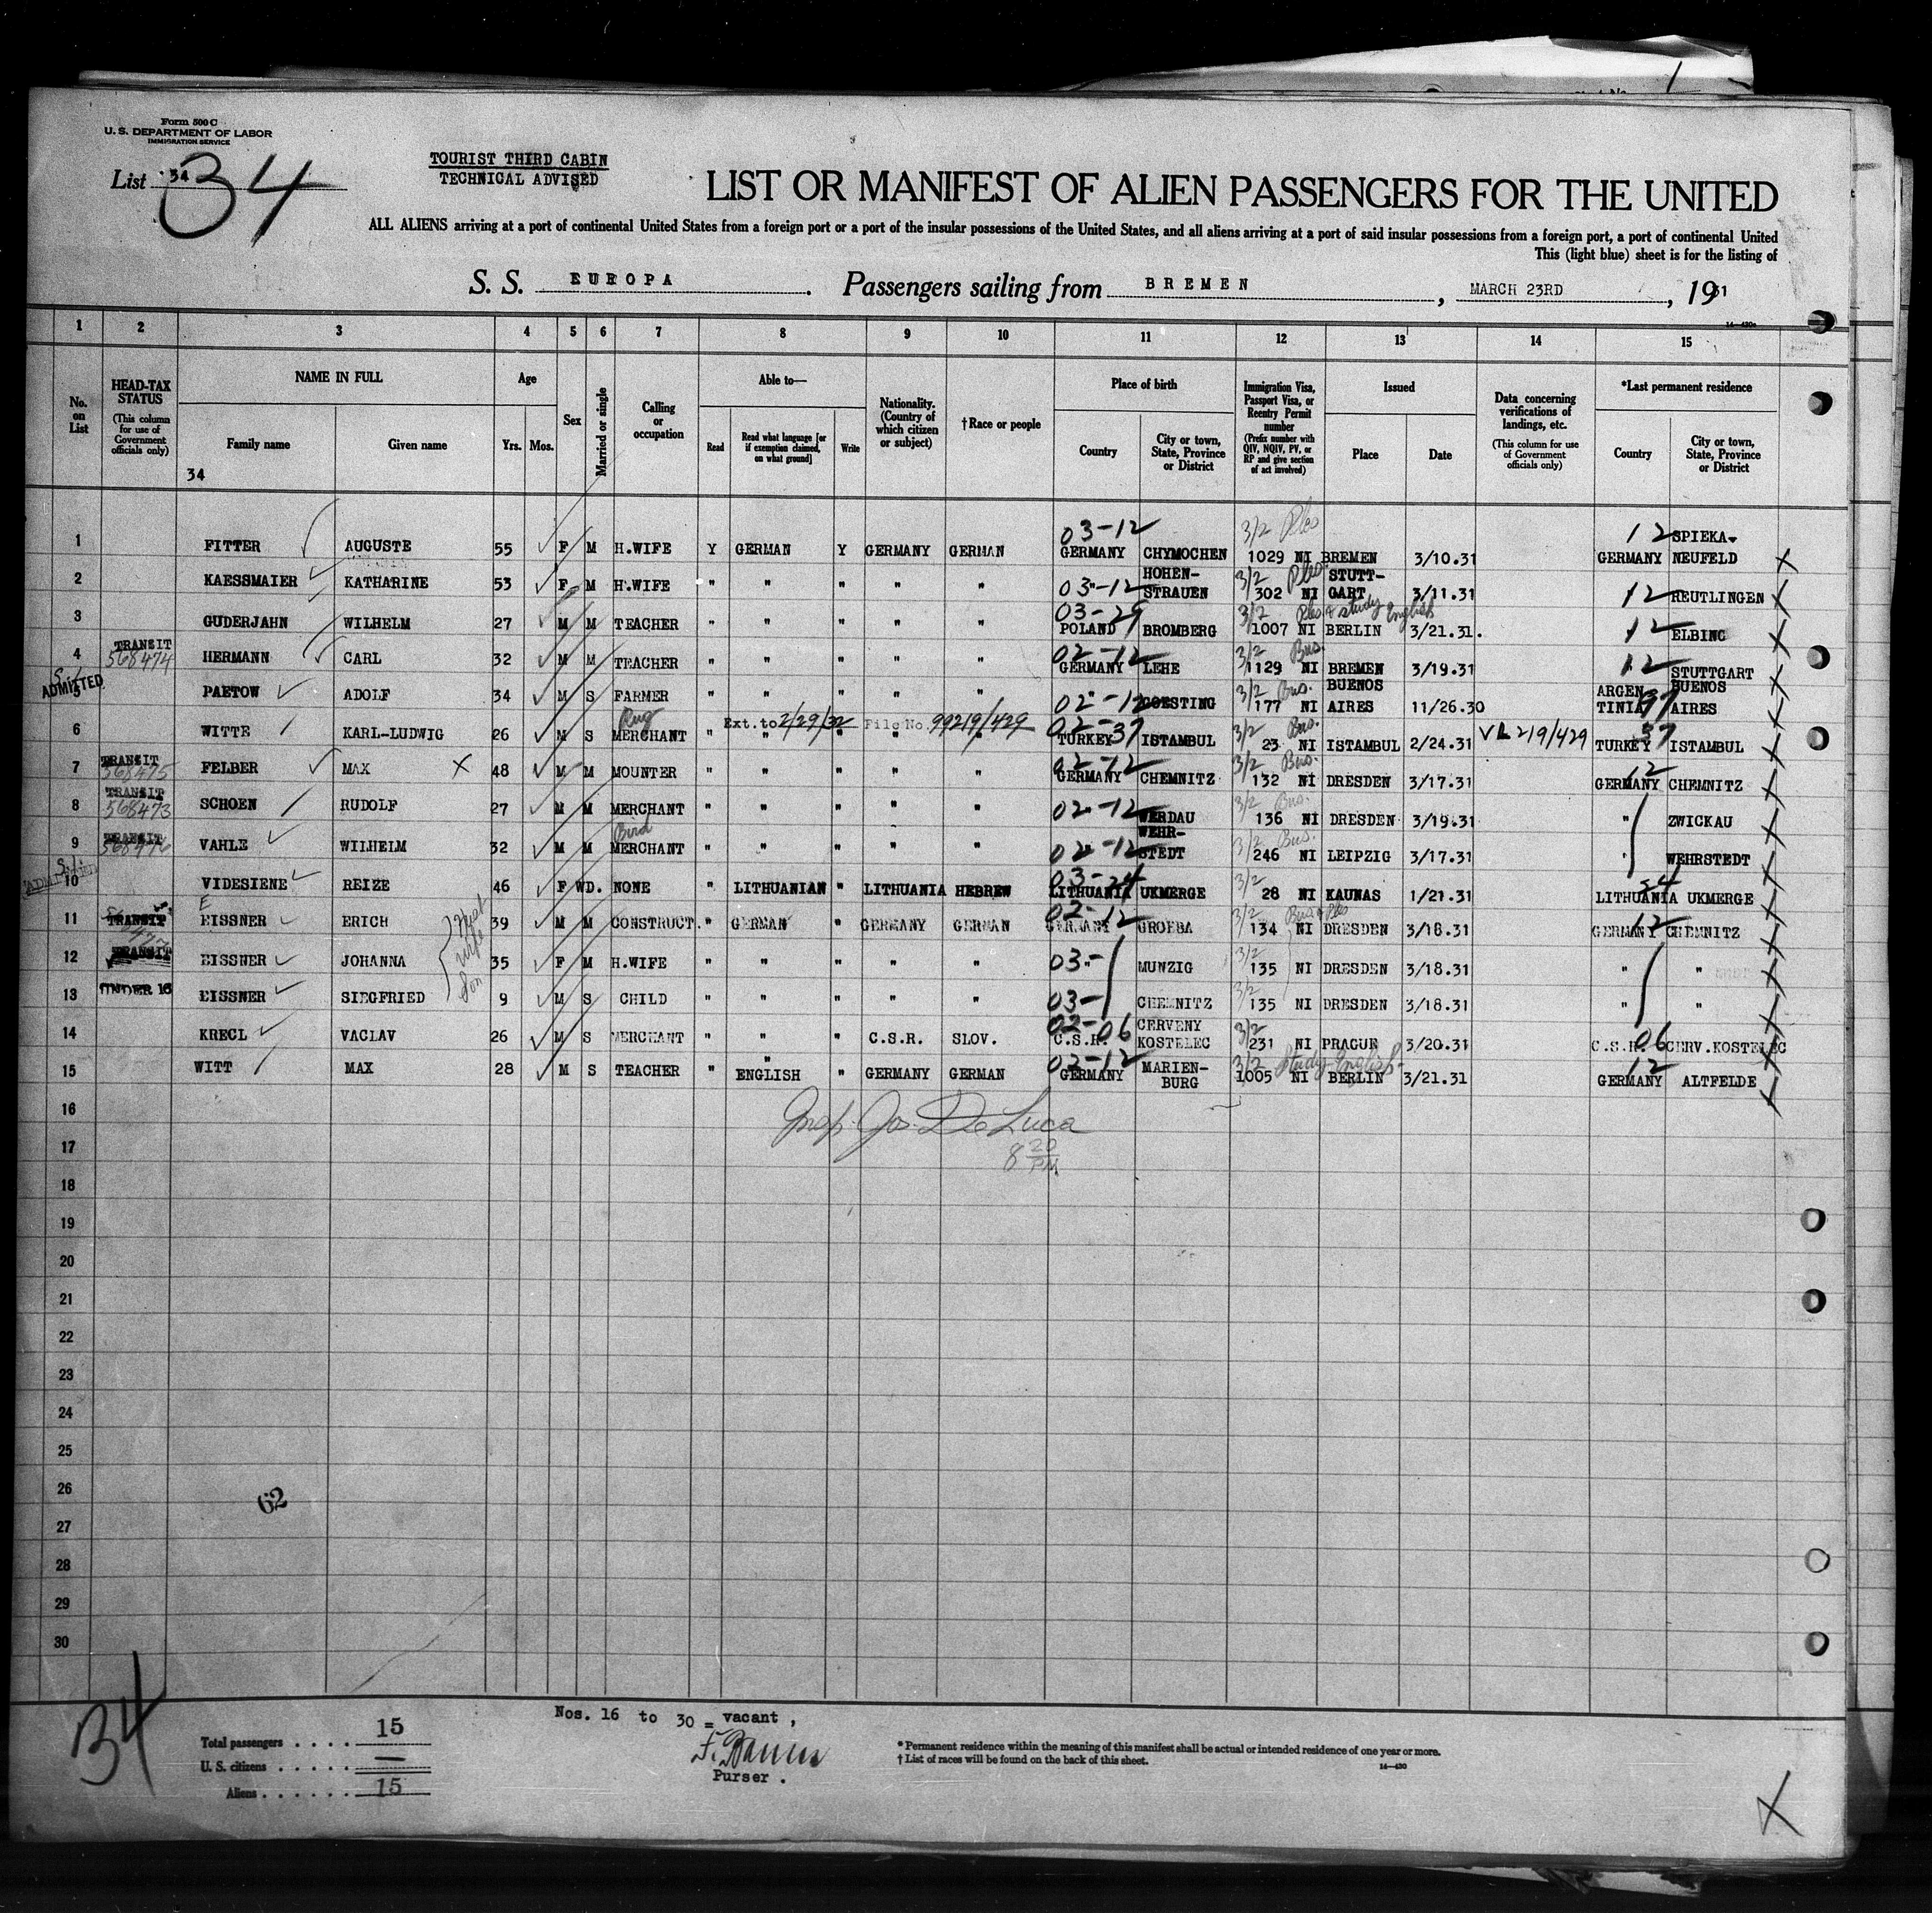 Form 500 C
U. S. DEPARTMENT OF LABOR
IMMIGRATION SERVICE
List 34 34
TOURIST THIRD CABIN
TECHNICAL ADVISED
LIST OR MANIFEST OF ALIEN PASSENGERS FOR THE UNITED
ALL ALIENS arriving at a port of continental United States from a foreign port or a port of the insular possessions of the United States, and all aliens arriving at a port of said insular possessions from a foreign port, a port of continental United
This (light blue) sheet is for the listing of
S. S. EUROPA. Passengers sailing from BREMEN, MARCH 23RD, 1931
14—430a
1 2 3 4 5 6 7 8 9 10 11 12 13 14 15
No. on List
HEAD-TAX STATUS (This column for use of Government officials only)
NAME IN FULL Family name Given name
Age Yrs. Mos.
Sex
Married or single
Calling or occupation
Able to— Read Read what language [or if exemption claimed, on what ground] Write
Nationality. (Country of which citizen or subject)
†Race or people
Place of birth Country City or town, State, Province or District
Immigration Visa, Passport Visa, or Reentry Permit number (Prefix number with QIV, NQIV, PV, or RP and give section of act involved)
Issued Place Date
Data concerning verifications of landings, etc. (This column for use of Government officials only)
*Last permanent residence Country City or town, State, Province or District
34
1 FITTER AUGUSTE 55 F M H.WIFE Y GERMAN Y GERMANY GERMAN 03-12 GERMANY CHYMOCHEN 3/2 Ples 1029 NI BREMEN 3/10.31 12 GERMANY SPIEKA-NEUFELD
2 KAESSMAIER KATHARINE 53 F M H.WIFE " " " " " 03-12 " HOHEN-STRAUEN 3/2 Ples. 302 NI STUTT-GART 3/11.31 12 REUTLINGEN
3 GUDERJAHN WILHELM 27 M M TEACHER " " " " " 03-29 POLAND BROMBERG 3/2 Ples & study English 1007 NI BERLIN 3/21.31. 12 ELBING
4 TRANSIT 568474 HERMANN CARL 32 M M TEACHER " " " " " 02-12 GERMANY LEHE 3/2 Bus. 1129 NI BREMEN 3/19.31 12 STUTTGART
5 ADMITTED PAETOW ADOLF 34 M S FARMER " " " " " 02-12 " 3/2 Bus. 177 NI BUENOS AIRES 11/26.30 ARGEN-TINIA BUENOS AIRES
6 WITTE KARL-LUDWIG 26 M S Rug MERCHANT " " " " " Ext. to 2/29/32 File No. 99219/429 02-37 TURKEY ISTAMBUL 3/2 Bus. 23 NI ISTAMBUL 2/24.31 VL 219/429 TURKEY 37 ISTAMBUL
7 TRANSIT 568475 FELBER MAX X 48 M M MOUNTER " " " " " 02-12 GERMANY CHEMNITZ 3/2 Bus. 132 NI DRESDEN 3/17.31 12 GERMANY CHEMNITZ
8 TRANSIT 568473 SCHOEN RUDOLF 27 M M MERCHANT " " " " " 02-12 " WERDAU 3/2 Bus. 136 NI DRESDEN 3/19.31 " ZWICKAU
9 TRANSIT 568476 VAHLE WILHELM 32 M M Bird MERCHANT " " " " " 02-12 " WEHR-STEDT 3/2 Bus. 246 NI LEIPZIG 3/17.31 " WEHRSTEDT
10 ADMITTED VIDESIENE REIZE 46 F WD. NONE " LITHUANIAN " LITHUANIA HEBREW 03-24 LITHUANIA UKMERGE 3/2 28 NI KAUNAS 1/21.31 24 LITHUANIA UKMERGE
11 TRANSIT EISSNER E ERICH Hust 39 M M CONSTRUCT. " GERMAN " GERMANY GERMAN 02-12 GERMANY GROEBA 3/2 Bus & Ples 134 NI DRESDEN 3/18.31 12 GERMANY CHEMNITZ
12 TRANSIT EISSNER JOHANNA wife 35 F M H.WIFE " " " " " 03- " MUNZIG 3/2 135 NI DRESDEN 3/18.31 " "
13 UNDER 16 EISSNER SIEGFRIED Son 9 M S CHILD " " " " " 03- CHEMNITZ 3/2 135 NI DRESDEN 3/18.31 " "
14 KRECL VACLAV 26 M S MERCHANT " " " C.S.R. SLOV. 02-06 C.S.R. CERVENY KOSTELEC 3/2 231 NI PRAGUE 3/20.31 C.S.R. 06 CERV.KOSTELEC
15 WITT MAX 28 M S TEACHER " " ENGLISH " GERMANY GERMAN 02-12 GERMANY MARIEN-BURG 3/2 Study English 1005 NI BERLIN 3/21.31 12 GERMANY ALTFELDE
16
Insp. Jos. De Luca
17
8 20 PM
18
19
20
21
22
23
24
25
26
62
27
28
29
30
34
Nos. 16 to 30 = vacant,
Purser.
Total passengers 15
U. S. citizens —
Aliens 15
* Permanent residence within the meaning of this manifest shall be actual or intended residence of one year or more.
† List of races will be found on the back of this sheet.
14—430
X